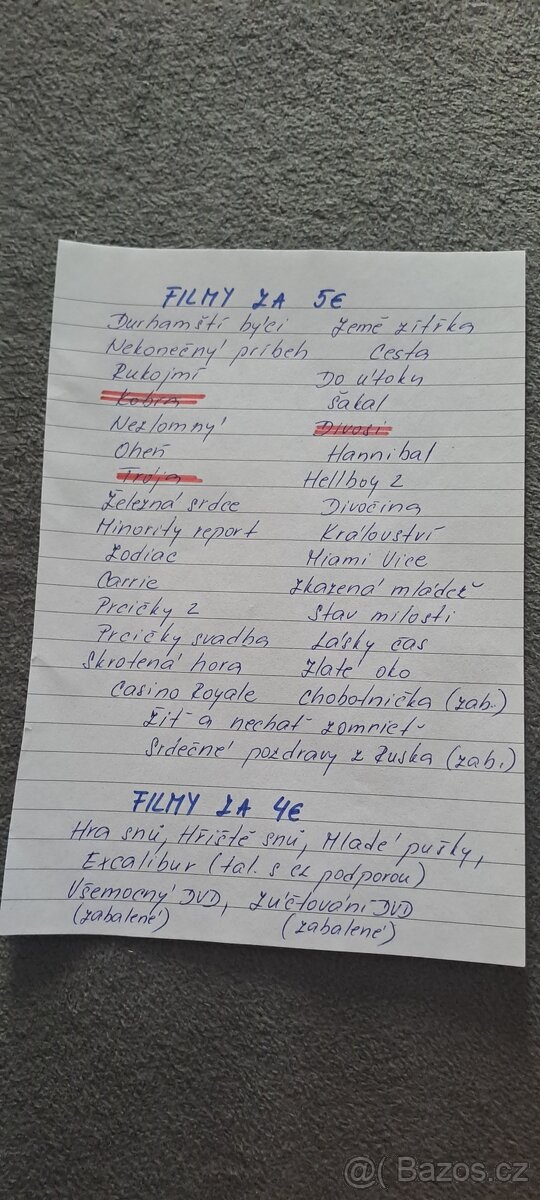 FILMY ZA 5€
Durhamští býci Země zítřka
Nekonečný príbeh Cesta
Rukojmí Do útoku
Kobra Šakal
Nezlomný Divosi
Oheň Hannibal
Troja Hellboy 2
Železná srdce Divočina
Minority report Království
Zodiac Miami Vice
Carrie Zkazená mládež
Prcičky 2 Stav milosti
Prcičky svadba Lásky čas
Skrotená hora Zlaté oko
Casino Royale Chobotnička (zab.)
Žiť a nechať zomrieť
Srdečné pozdravy z Ruska (zab.)
FILMY ZA 4€
Hra snů, Hřiště snů, Mladé pušky,
Excalibur (tal. s cz podporou)
Všemocný DVD, Zúčtování DVD
(zabalené) (zabalené)
@( Bazos.cz